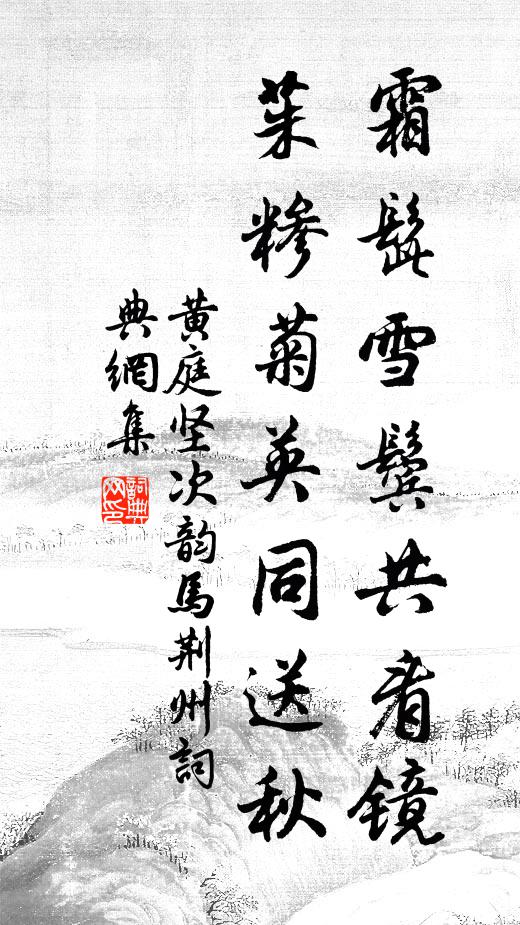 霜髭雪鬓共看镜
茱糁菊英同送秋
黄庭坚次韵马荆州詞
典網集
詞典网印